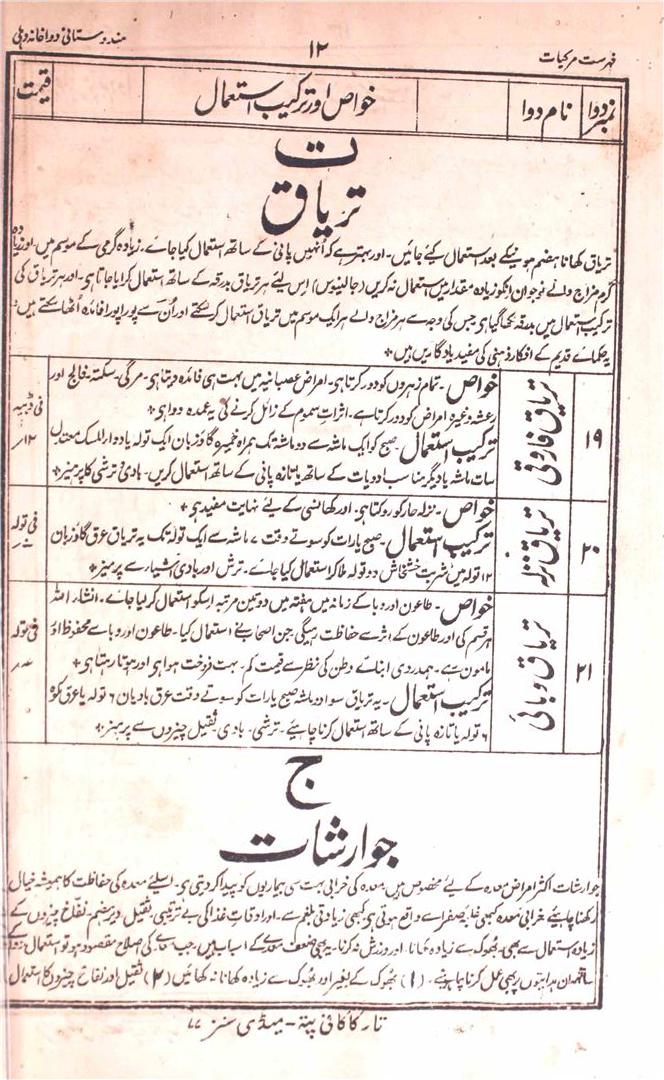 فہرست مرکبات ۱۲ ہندوستانی دواخانہ دہلی
نمبر دوا نام دوا خواص اور ترکیب استعمال قیمت
ت
تریاق
تریاق کھانا ہضم ہونیکے بعد استعمال کیے جائیں۔ اور بہتر ہے کہ اُنہیں پانی کے ساتھ استعمال کیا جائے۔ زیادہ گرمی کے موسم میں۔ اور زیادہ
گرم مزاج والے نوجوان انکو زیادہ مقدار میں استعمال نہ کریں (جالینوس) اس لیے ہر تریاق بدرقہ کے ساتھ استعمال کرایا جاتا ہی۔ اور ہر تریاق کی
ترکیب استعمال میں بدرقہ لکھا گیا ہی جس کی وجہ سے ہر مزاج والے ہر ایک موسم میں تریاق استعمال کر سکتے اور اُن سے پورا پورا فائدہ اُٹھا سکتے ہیں۔
یہ حکمائے قدیم کے افکار ذہنی کی مفید یادگاریں ہیں +
۱۹ تریاق فاروقی
خواص۔ تمام زہروں کو دور کرتا ہی۔ امراض عصبانیہ میں بہت ہی فائدہ دیتا ہی۔ مرگی۔ سکتہ۔ فالج اور
رعشہ وغیرہ امراض کو دور کرتا ہے۔ اثرات سموم کے زائل کرنے کی یہ عمدہ دوا ہی +
ترکیب استعمال۔ صبح کو ایک ماشہ سے دو ماشہ تک ہمراہ خمیرہ گاؤزبان ایک تولہ یا دوارالمسک معتدل
سات ماشہ یا دیگر مناسب ادویات کے ساتھ یا تازہ پانی کے ساتھ استعمال کریں۔ بادی و ترشی کا پرہیز +
فی ڈبیہ
۱۲؍
۲۰ تریاق نزلہ
خواص۔ نزلہ حار کو روکتا ہی۔ اور کھانسی کے لیے نہایت مفید ہی +
ترکیب استعمال۔ صبح یا رات کو سوتے وقت ۷ ماشہ سے ایک تولہ تک یہ تریاق عرق گاؤزبان
۱۲ تولہ میں شربت خشخاش دو تولہ ملا کر استعمال کیا جائے۔ ترش اور بادی اشیا سے پرہیز +
فی تولہ
۲۱ تریاق وبائی
خواص۔ طاعون اور وبا کے زمانہ میں ہفتہ میں دو تین مرتبہ اسکو استعمال کر لیا جائے۔ انشاء اللہ
ہر قسم کی اور طاعون کے اثر سے حفاظت رہیگی۔ جن اصحاب نے استعمال کیا۔ طاعون اور وبا سے محفوظ اور
مامون رہے۔ ہمدردی ابنائے وطن کی نظر سے قیمت کم۔ بہت فروخت ہوا ہی اور ہوتا رہتا ہی +
ترکیب استعمال۔ یہ تریاق سوا دو ماشہ صبح یا رات کو سوتے وقت عرق بادیان ۶ تولہ یا عرق مکوہ
۶ تولہ یا تازہ پانی کے ساتھ استعمال کرنا چاہیے۔ ترشی۔ بادی۔ ثقیل چیزوں سے پرہیز +
فی تولہ
ج
جوارشات
جوارشات اکثر امراض معدہ کے لیے مخصوص ہیں معدہ کی خرابی بہت سی بیماریوں کو پیدا کر دیتی ہی۔ اسلیے معدہ کی حفاظت کا ہمیشہ خیال
رکھنا چاہیئے۔ خرابی معدہ کبھی غلبہ صفرا سے واقع ہوتی ہی کبھی زیادتی بلغم سے۔ اور اوقات غذا کی بے ترتیبی۔ ثقیل۔ دیرہضم۔ نفاخ چیزوں کے
زیادہ استعمال سے بھی۔ بھوک سے زیادہ کھانا۔ اور ورزش نہ کرنا۔ یہ بھی ضعف معدہ کے اسباب ہیں۔ جب معدہ کی اصلاح مقصود ہو تو استعمال
ساتھ ان ہدایتوں پر بھی عمل کرنا چاہیئے۔ (۱) بھوک کے بغیر اور بھوک سے زیادہ کھانا نہ کھائیں (۲) ثقیل اور نفاخ چیزوں کا استعمال
تار کا کافی پتہ۔ میڈی سنز ۷۷